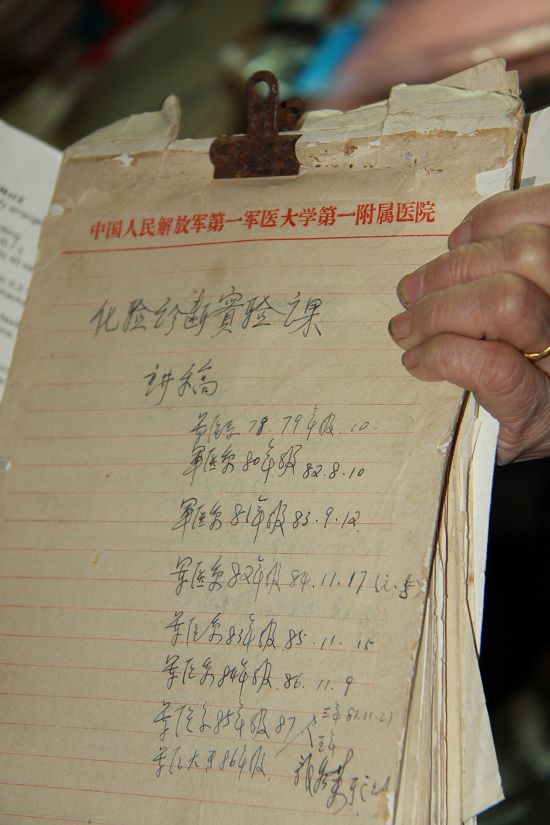 中国人民解放军第一军医大学第一附属医院
化验诊断實验课
讲稿
军医系78.79年级.10.
軍医系80年级82.8.10
軍医系81年级83.9.12
军医系82年级84.11.17
军医系83年级85.11.15
军医系84年级.86.11.9
军医系85年级87.
三年87.11.21
五年
军医大系86年级.